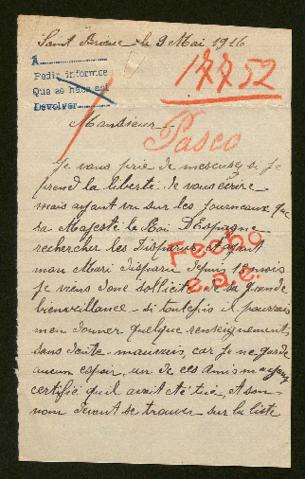 Saint Brieuc le 9 Mai 1916
A
Pedir informce
Que se haga así
Devolver
17752
Monsieur
Pasco
Je vous prie de m'escusez si je
prend la liberté de vous écrire
mais ayant vu sur les journeaux que
sa Majesté le Roi D'Espagne
recherche les Disparus et ayant
mon Mari disparu depuis mois
je viens donc sollicité de sa grande
bienveillance si toutefois il pouvais
men donner quelque renseignements
sans doute mauvais, car je ne garde
aucun espoir, un de ces amis m'ayant
certifié quil avait été tué, et son
nom devant se trouver sur la liste
Fecho